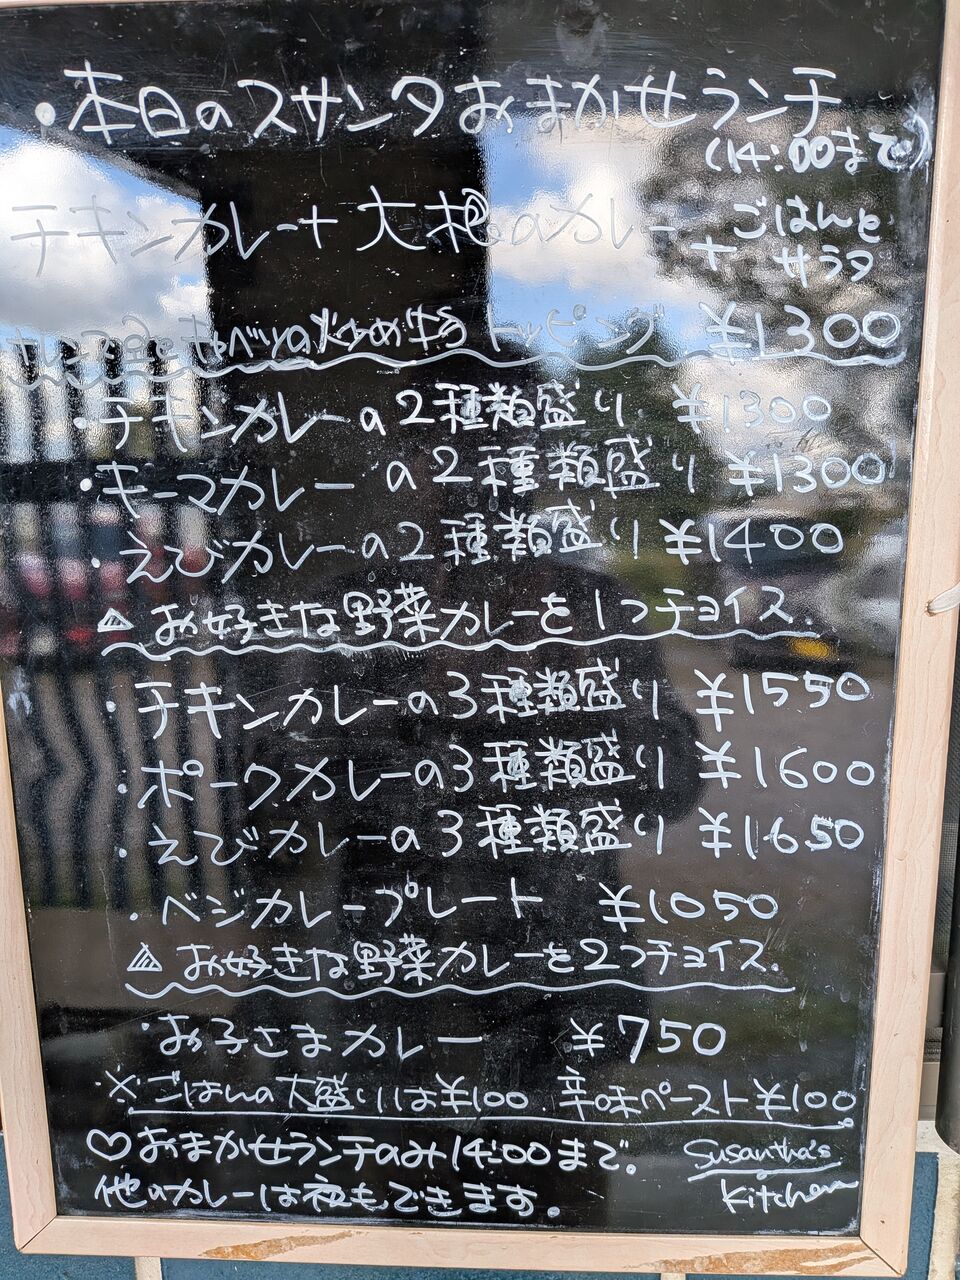 ・本日のスサンタおまかせランチ
(14:00まで)
チキンカレー+大根のカレー
+ごはんと
サラダ
キャベツの炒め物トッピング ¥1300
・チキンカレーの2種類盛り ¥1300
・キーマカレーの2種類盛り ¥1300
・えびカレーの2種類盛り ¥1400
△お好きな野菜カレーを1つチョイス.
・チキンカレーの3種類盛り ¥1550
・ポークカレーの3種類盛り ¥1600
・えびカレーの3種類盛り ¥1650
・ベジカレープレート ¥1050
△お好きな野菜カレーを2つチョイス.
・お子さまカレー ¥750
※ごはんの大盛りは¥100. 辛味ペースト¥100
♡おまかせランチのみ14:00まで。
他のカレーは夜もできます。
Susantha's
Kitchen